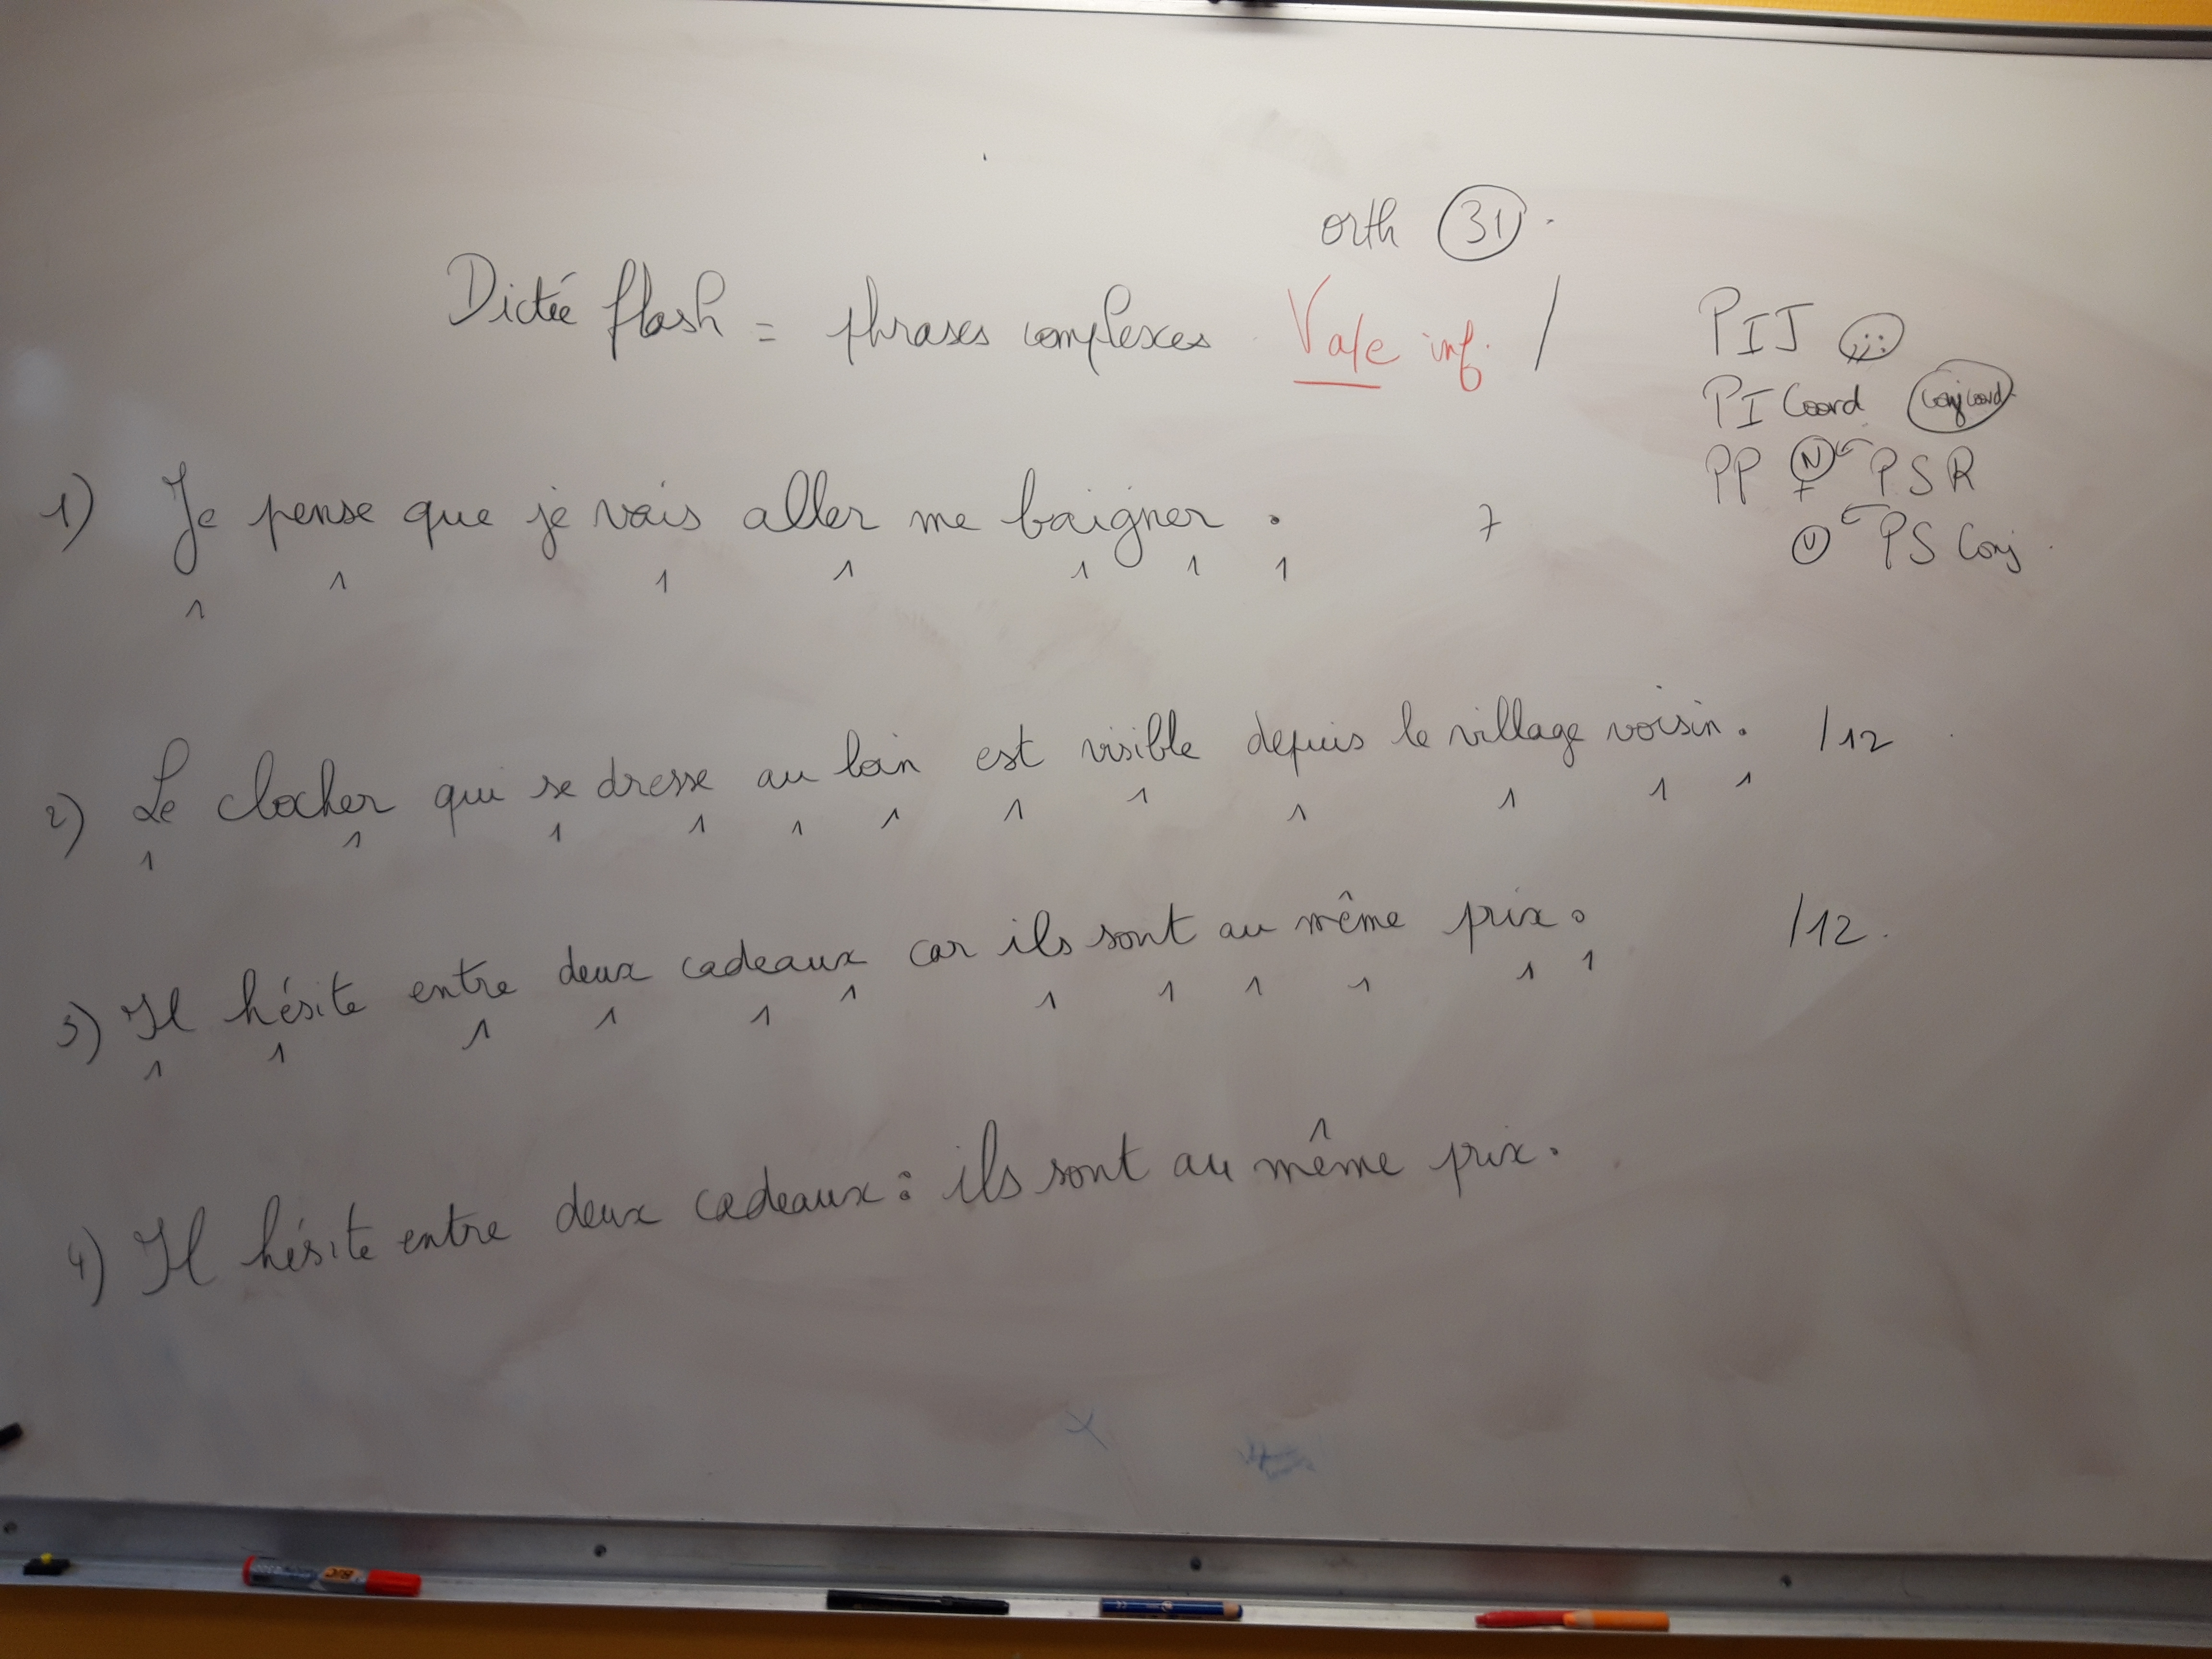 orth 31.
Dictée flash = phrases complexes Vale inf. /
PIJ , ; :
PI Coord conj coord
PP N PSR
V PS Conj.
1) Je pense que je vais aller me baigner. 7
1 1 1 1 1 1 1
2) Le clocher qui se dresse au loin est visible depuis le village voisin. /12
1 1 1 1 1 1 1 1 1 1 1 1
3) Il hésite entre deux cadeaux car ils sont au même prix. /12.
1 1 1 1 1 1 1 1 1 1 1 1
4) Il hésite entre deux cadeaux : ils sont au même prix.
BIC